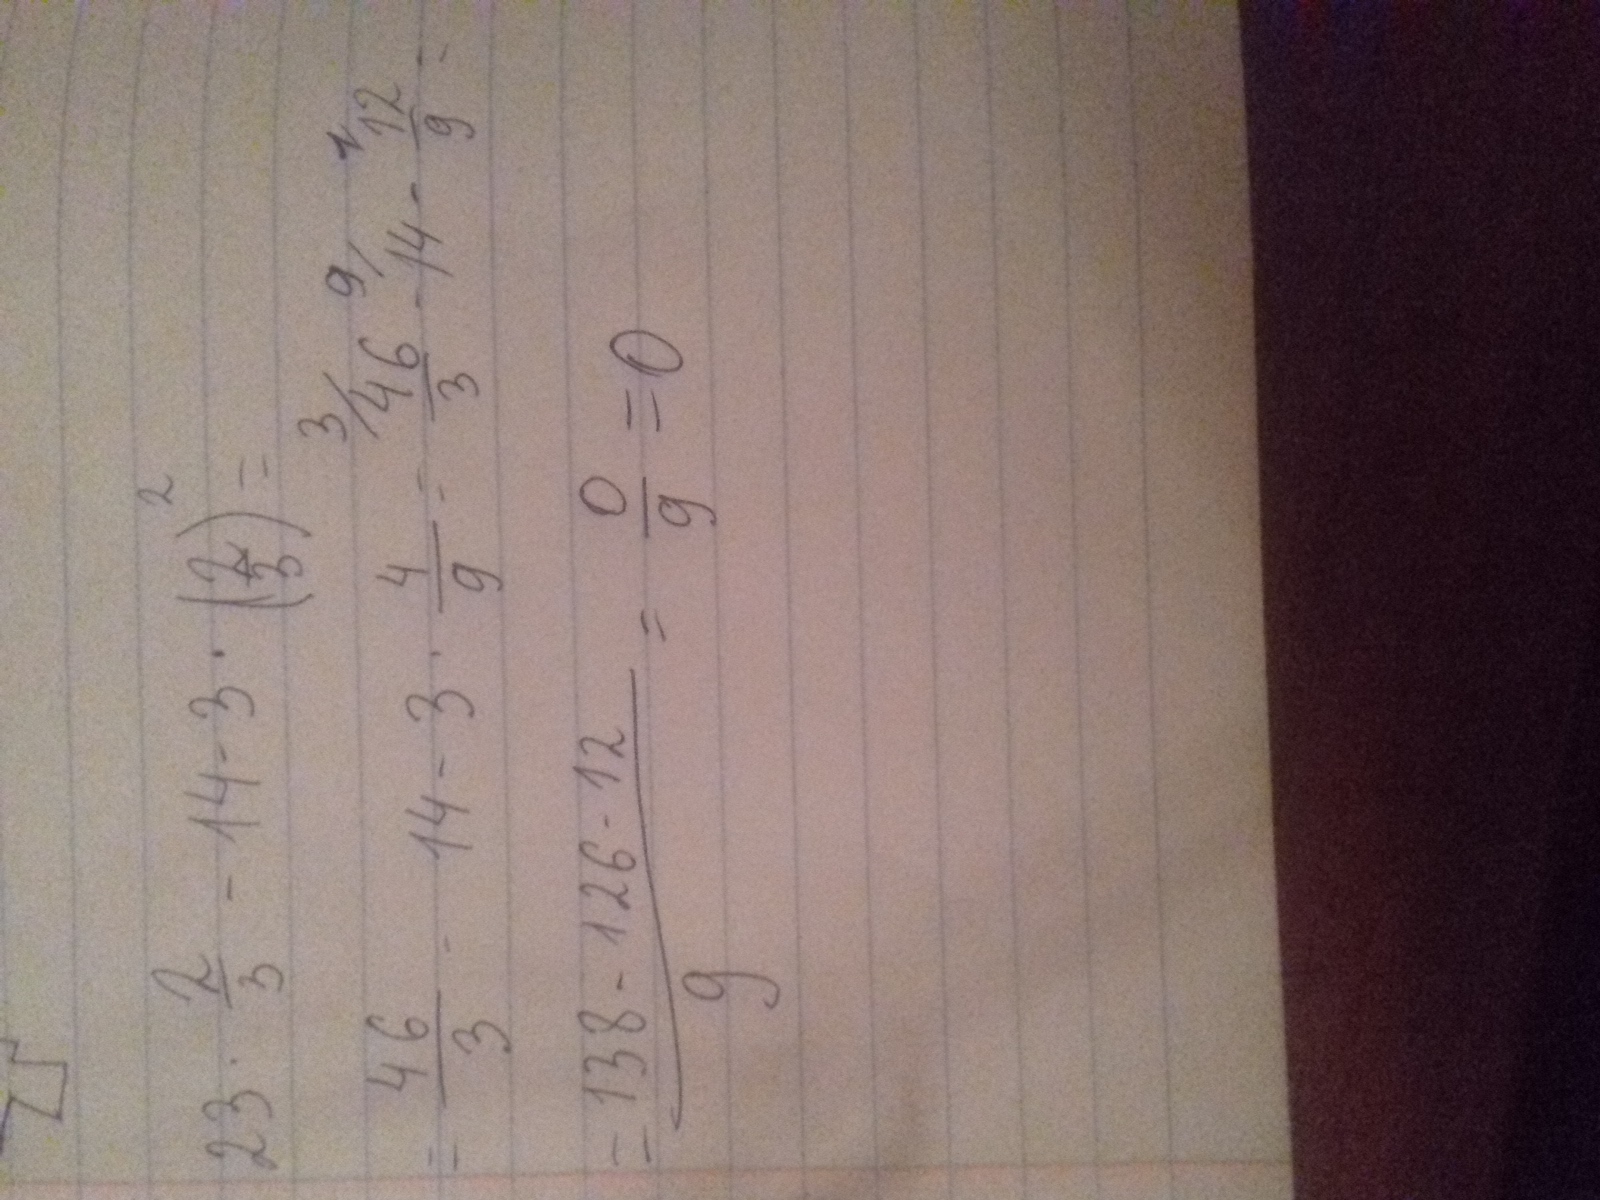 23 · 2/3 - 14 - 3 · (2/3)² =
= 46/3 - 14 - 3 · 4/9 = ³/46/3 - ⁹/14 - ¹12/9 =
= 138 - 126 - 12/9 = 0/9 = 0